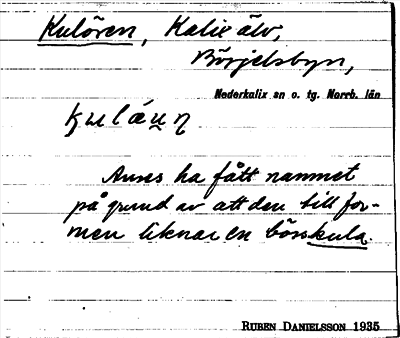 Kulören, Kalix älv,
Börjelsbyn,
Nederkalix sn o. tg. Norrb. län
Anses ha fått namnet
på grund av att den till for-
men liknar en bösskula.
RUBEN DANIELSSON 1935